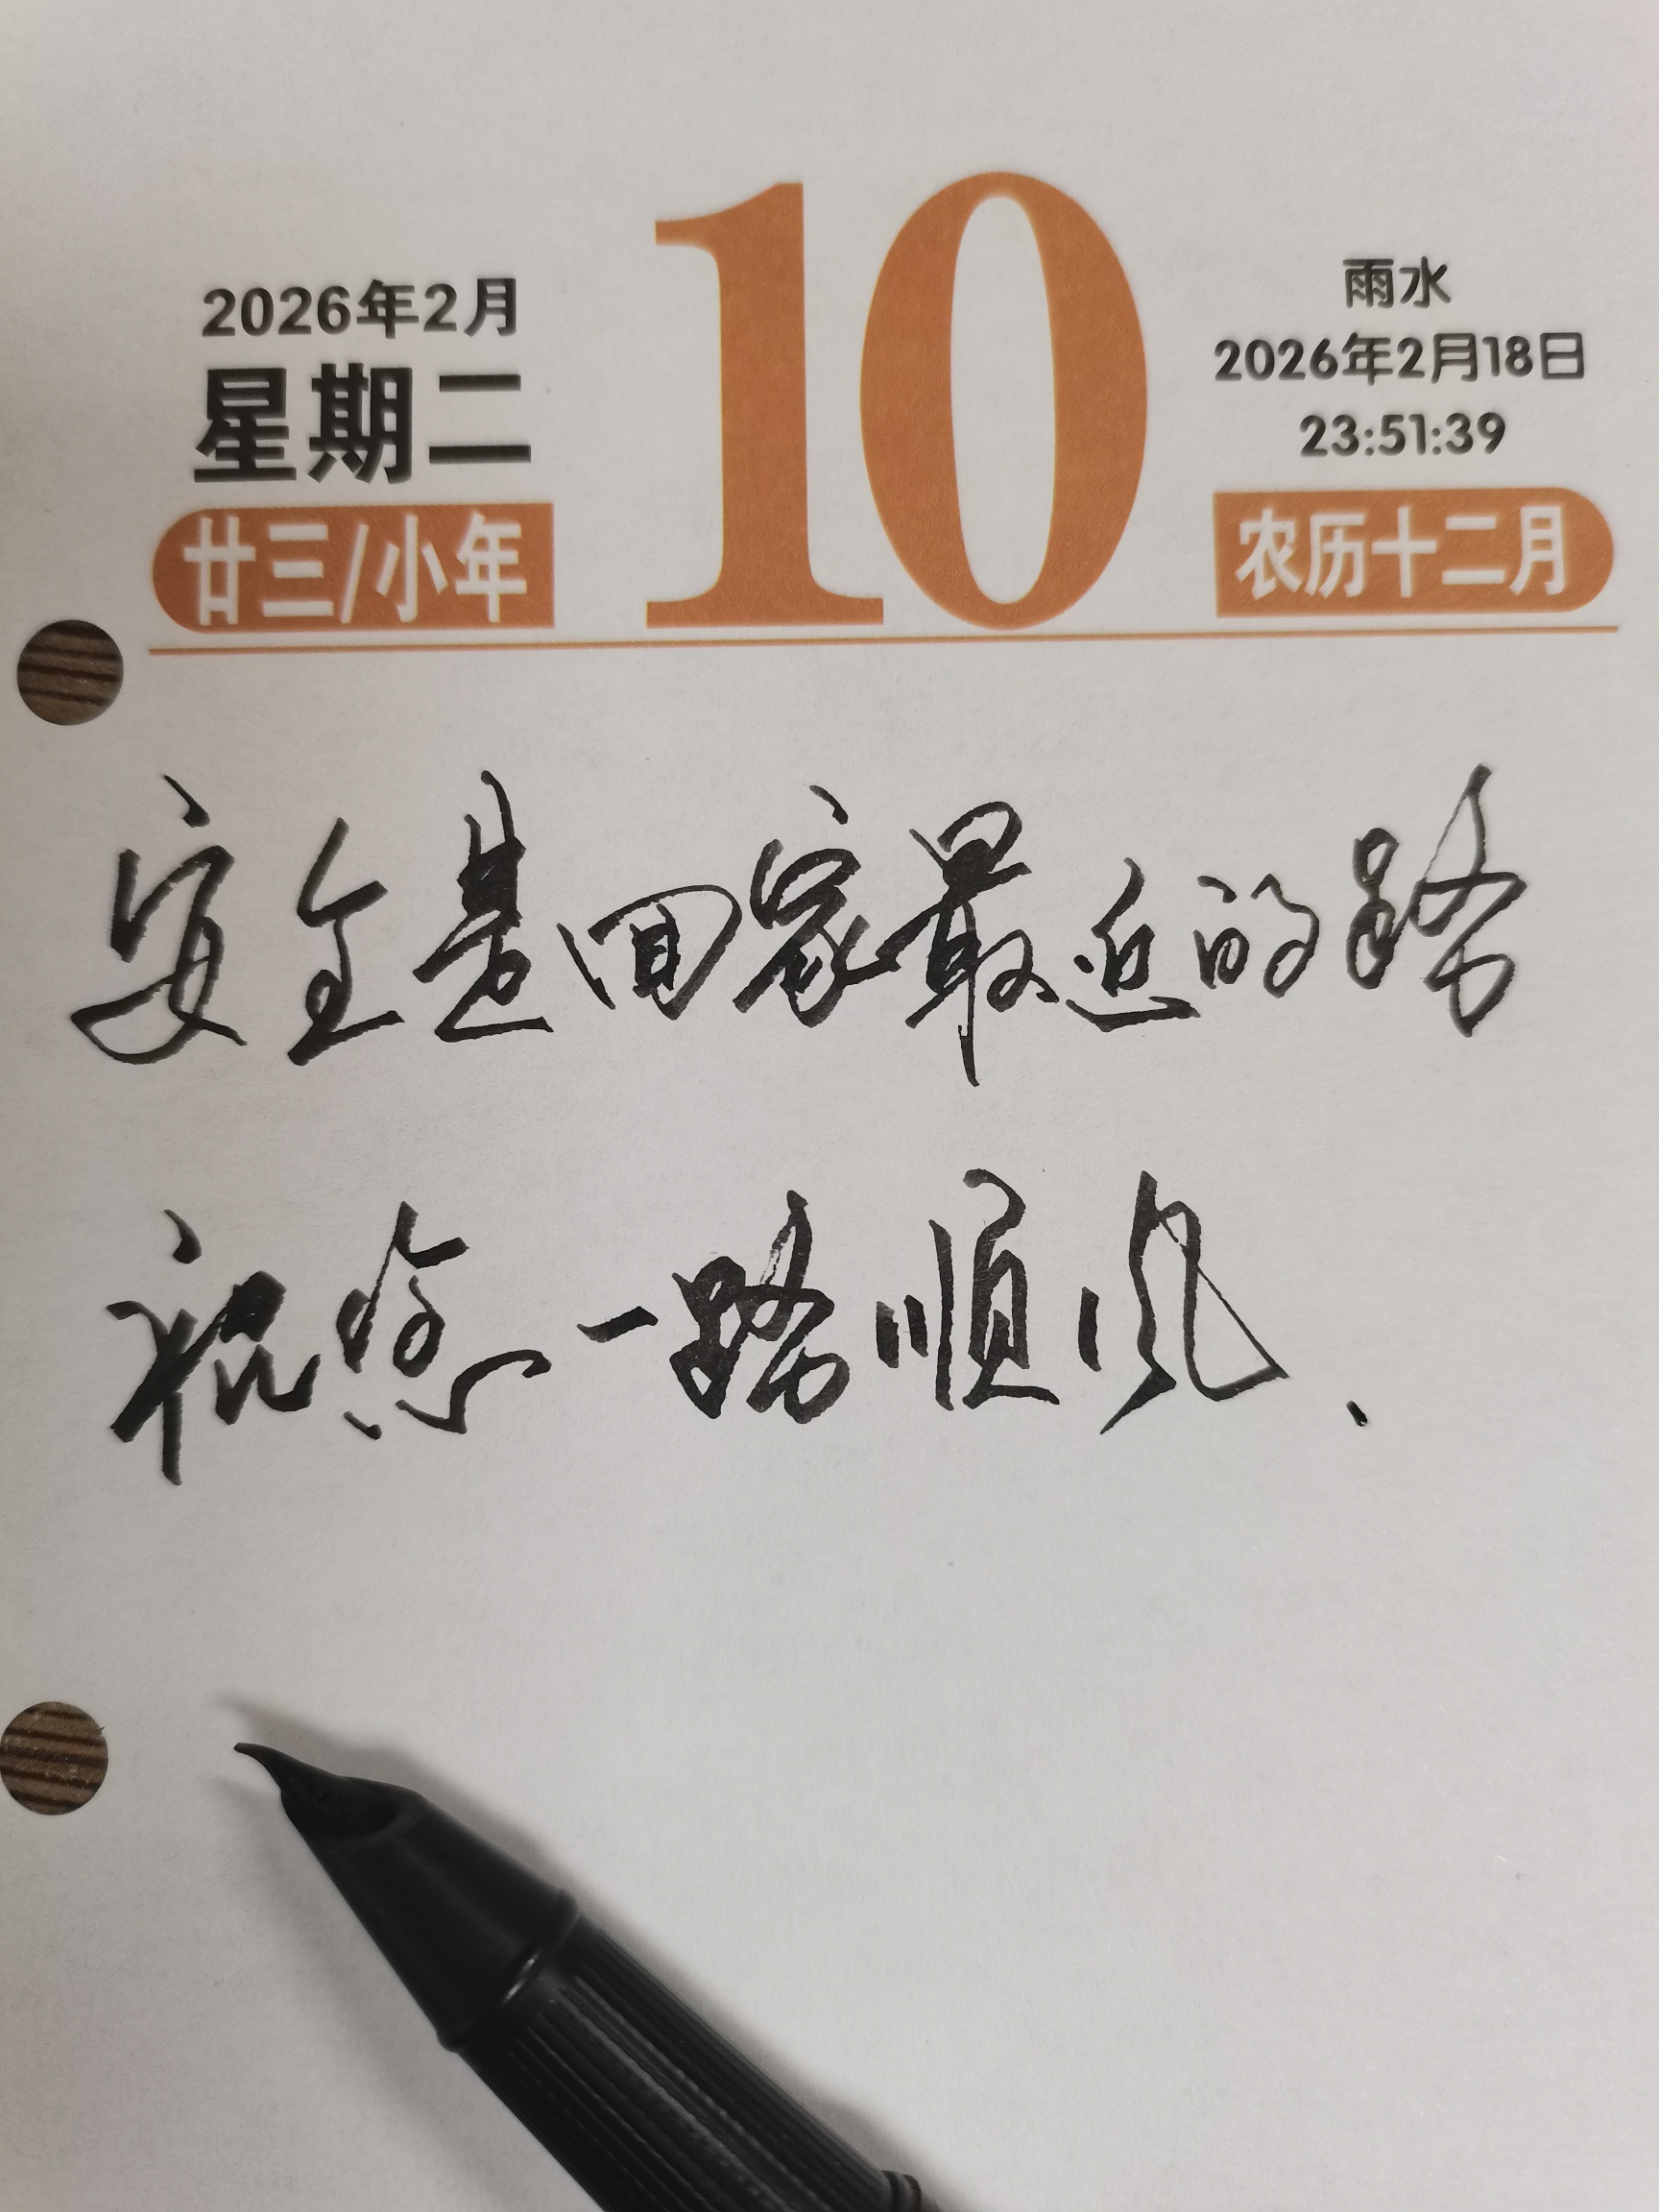 2026年2月
星期二
廿三/小年
10
雨水
2026年2月18日
23:51:39
农历十二月
安全是回家最近的路
祝您一路顺风.